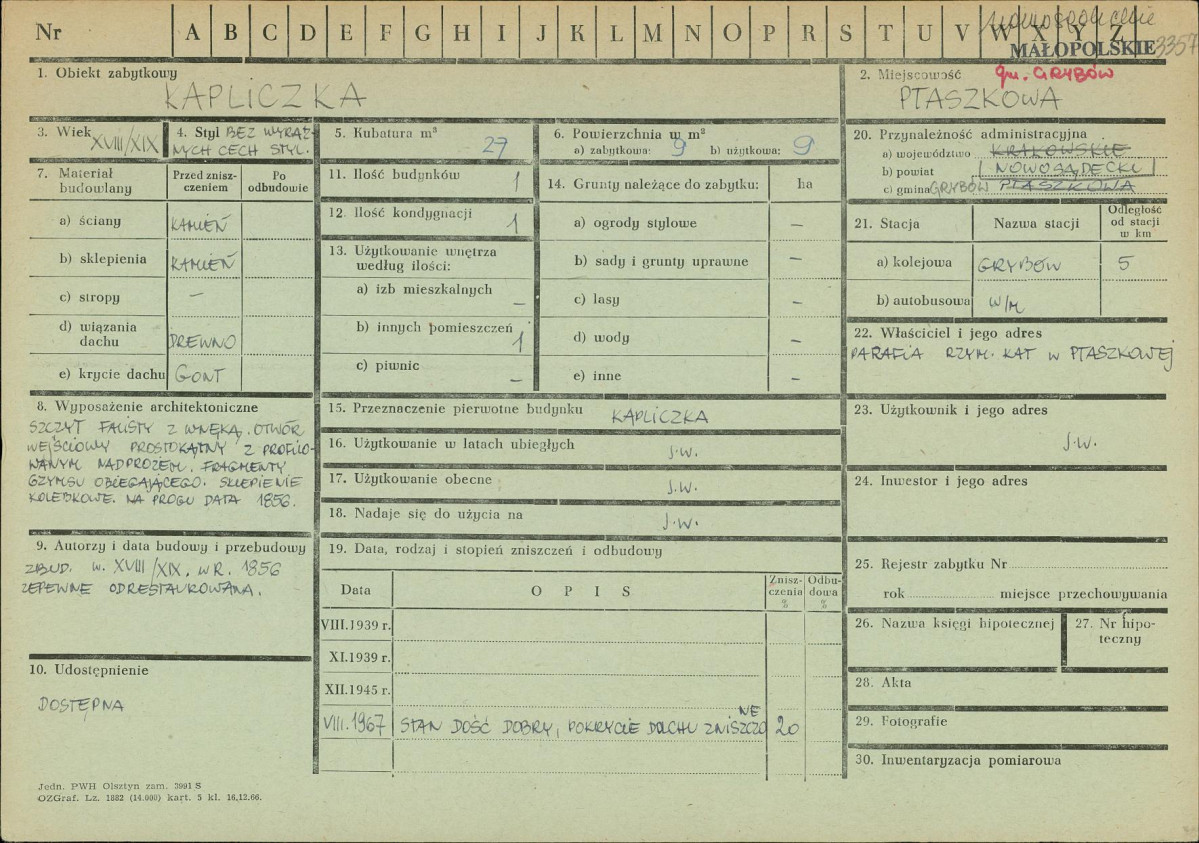 Nr A B C D E F G H I J K L M N O P R S T U V W X Y Z
nowosądeckie
MAŁOPOLSKIE 3357
1. Obiekt zabytkowy
KAPLICZKA
2. Miejscowość gm. GRYBÓW
PTASZKOWA
3. Wiek XVIII/XIX
4. Styl BEZ WYRAŹ-
NYCH CECH STYL.
5. Kubatura m³
27
6. Powierzchnia w m²
a) zabytkowa: 9 b) użytkowa: 9
20. Przynależność administracyjna
a) województwo KRAKOWSKIE
b) powiat NOWOSĄDECKI
c) gmina GRYBÓW PTASZKOWA
7. Materiał
budowlany
Przed znisz-
czeniem
Po
odbudowie
a) ściany KAMIEŃ
b) sklepienia KAMIEŃ
c) stropy –
d) wiązania
dachu DREWNO
e) krycie dachu GONT
11. Ilość budynków 1
12. Ilość kondygnacji 1
13. Użytkowanie wnętrza
według ilości:
a) izb mieszkalnych –
b) innych pomieszczeń 1
c) piwnic –
14. Grunty należące do zabytku: ha
a) ogrody stylowe –
b) sady i grunty uprawne –
c) lasy –
d) wody –
e) inne –
21. Stacja Nazwa stacji Odległość
od stacji
w km
a) kolejowa GRYBÓW 5
b) autobusowa W/M
22. Właściciel i jego adres
PARAFIA RZYM. KAT W PTASZKOWEJ
8. Wyposażenie architektoniczne
SZCZYT FALISTY Z WNĘKĄ. OTWÓR
WEJŚCIOWY PROSTOKĄTNY Z PROFILO-
WANYM NADPROŻEM. FRAGMENTY
GZYMSU OBIEGAJĄCEGO. SKLEPIENIE
KOLEBKOWE. NA PROGU DATA 1856.
15. Przeznaczenie pierwotne budynku KAPLICZKA
16. Użytkowanie w latach ubiegłych j.w.
17. Użytkowanie obecne j.w.
18. Nadaje się do użycia na j.w.
23. Użytkownik i jego adres
j.w.
24. Inwestor i jego adres
9. Autorzy i data budowy i przebudowy
ZBUD. W. XVIII/XIX, W R. 1856
ZEPEWNE ODRESTAUROWANA.
10. Udostępnienie
DOSTĘPNA
19. Data, rodzaj i stopień zniszczeń i odbudowy
Data O P I S Znisz-
czenia
% Odbu-
dowa
%
VIII.1939 r.
XI.1939 r.
XII.1945 r.
VIII.1967 STAN DOŚĆ DOBRY, POKRYCIE DACHU ZNISZCZONE 20
25. Rejestr zabytku Nr
rok miejsce przechowywania
26. Nazwa księgi hipotecznej
27. Nr hipo-
teczny
28. Akta
29. Fotografie
30. Inwentaryzacja pomiarowa
Jedn. PWH Olsztyn zam. 3991 S
OZGraf. Lz. 1882 (14.000) kart. 5 kl. 16.12.66.